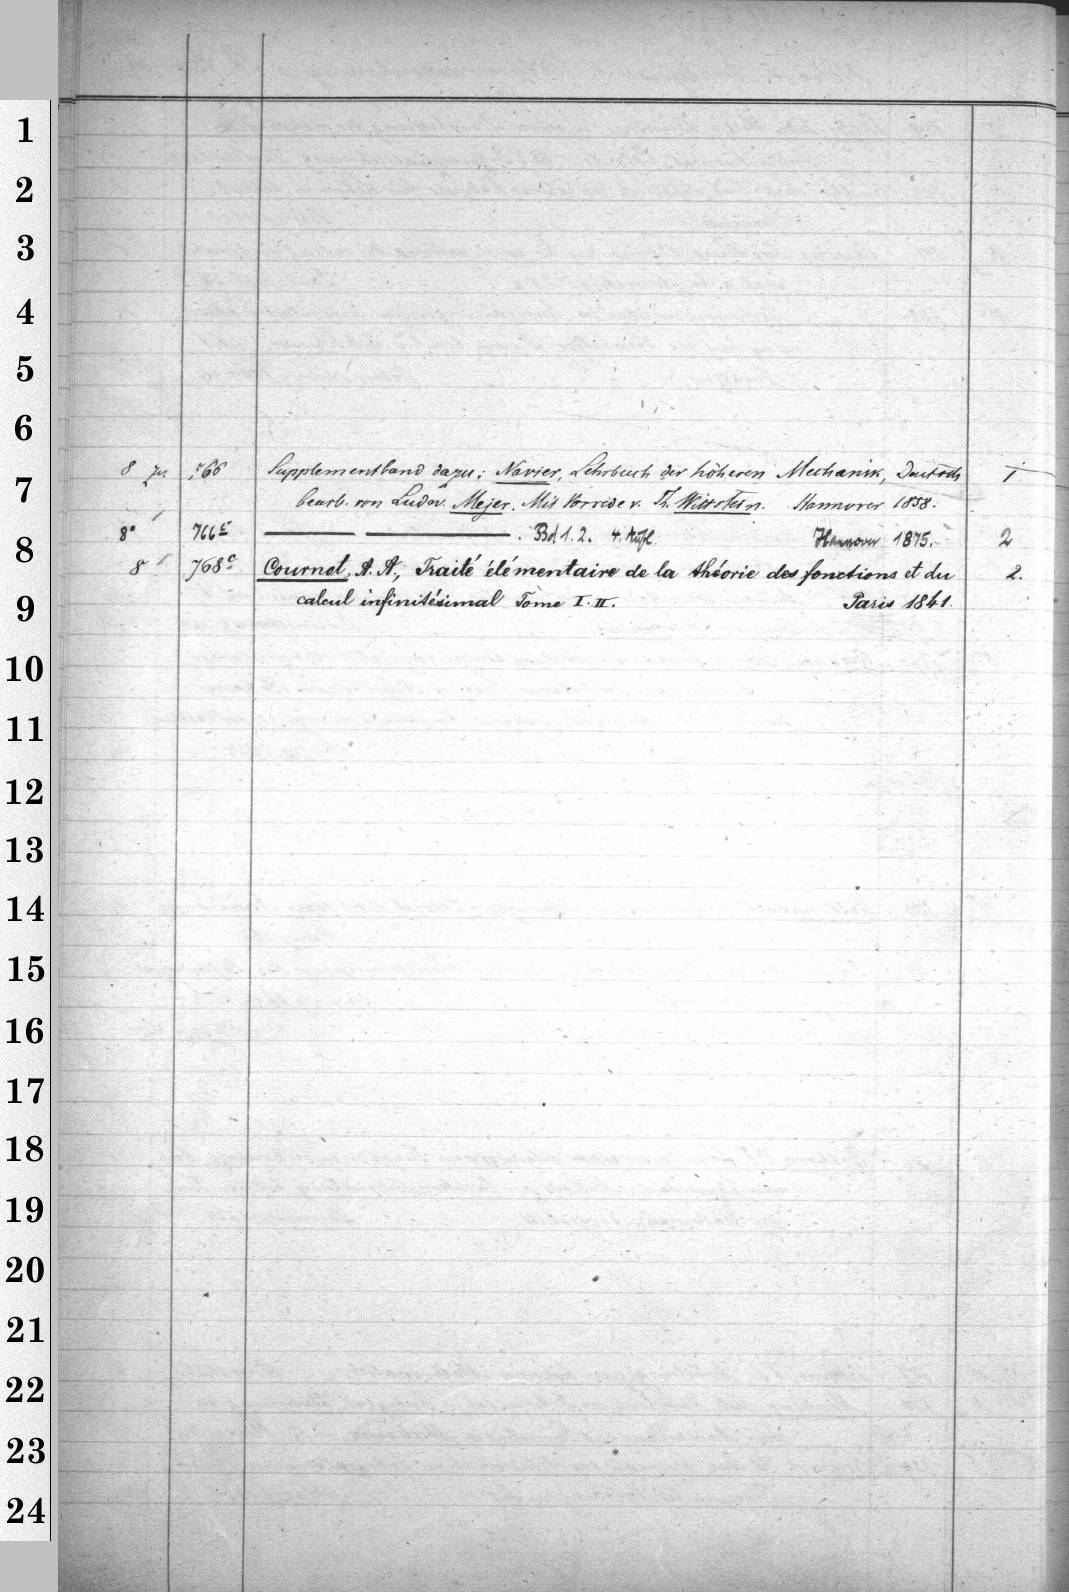 1
2
3
4
5
6
8 zu 766 Supplementband dazu: Navier, Lehrbuch der höheren Mechanik, Deutsch 1
7
bearb. von Ludw. Mejer. Mit Vorrede v. Th. Wittstein. Hannover 1858.
8° 766c — — . Bd 1. 2. 4. Aufl. Hannover 1875. 2
8
8 768c Cournot, A. A., Traité élémentaire de la théorie des fonctions et du 2.
9
calcul infinitésimal Tome I. II. Paris 1841.
10
11
12
13
14
15
16
17
18
19
20
21
22
23
24